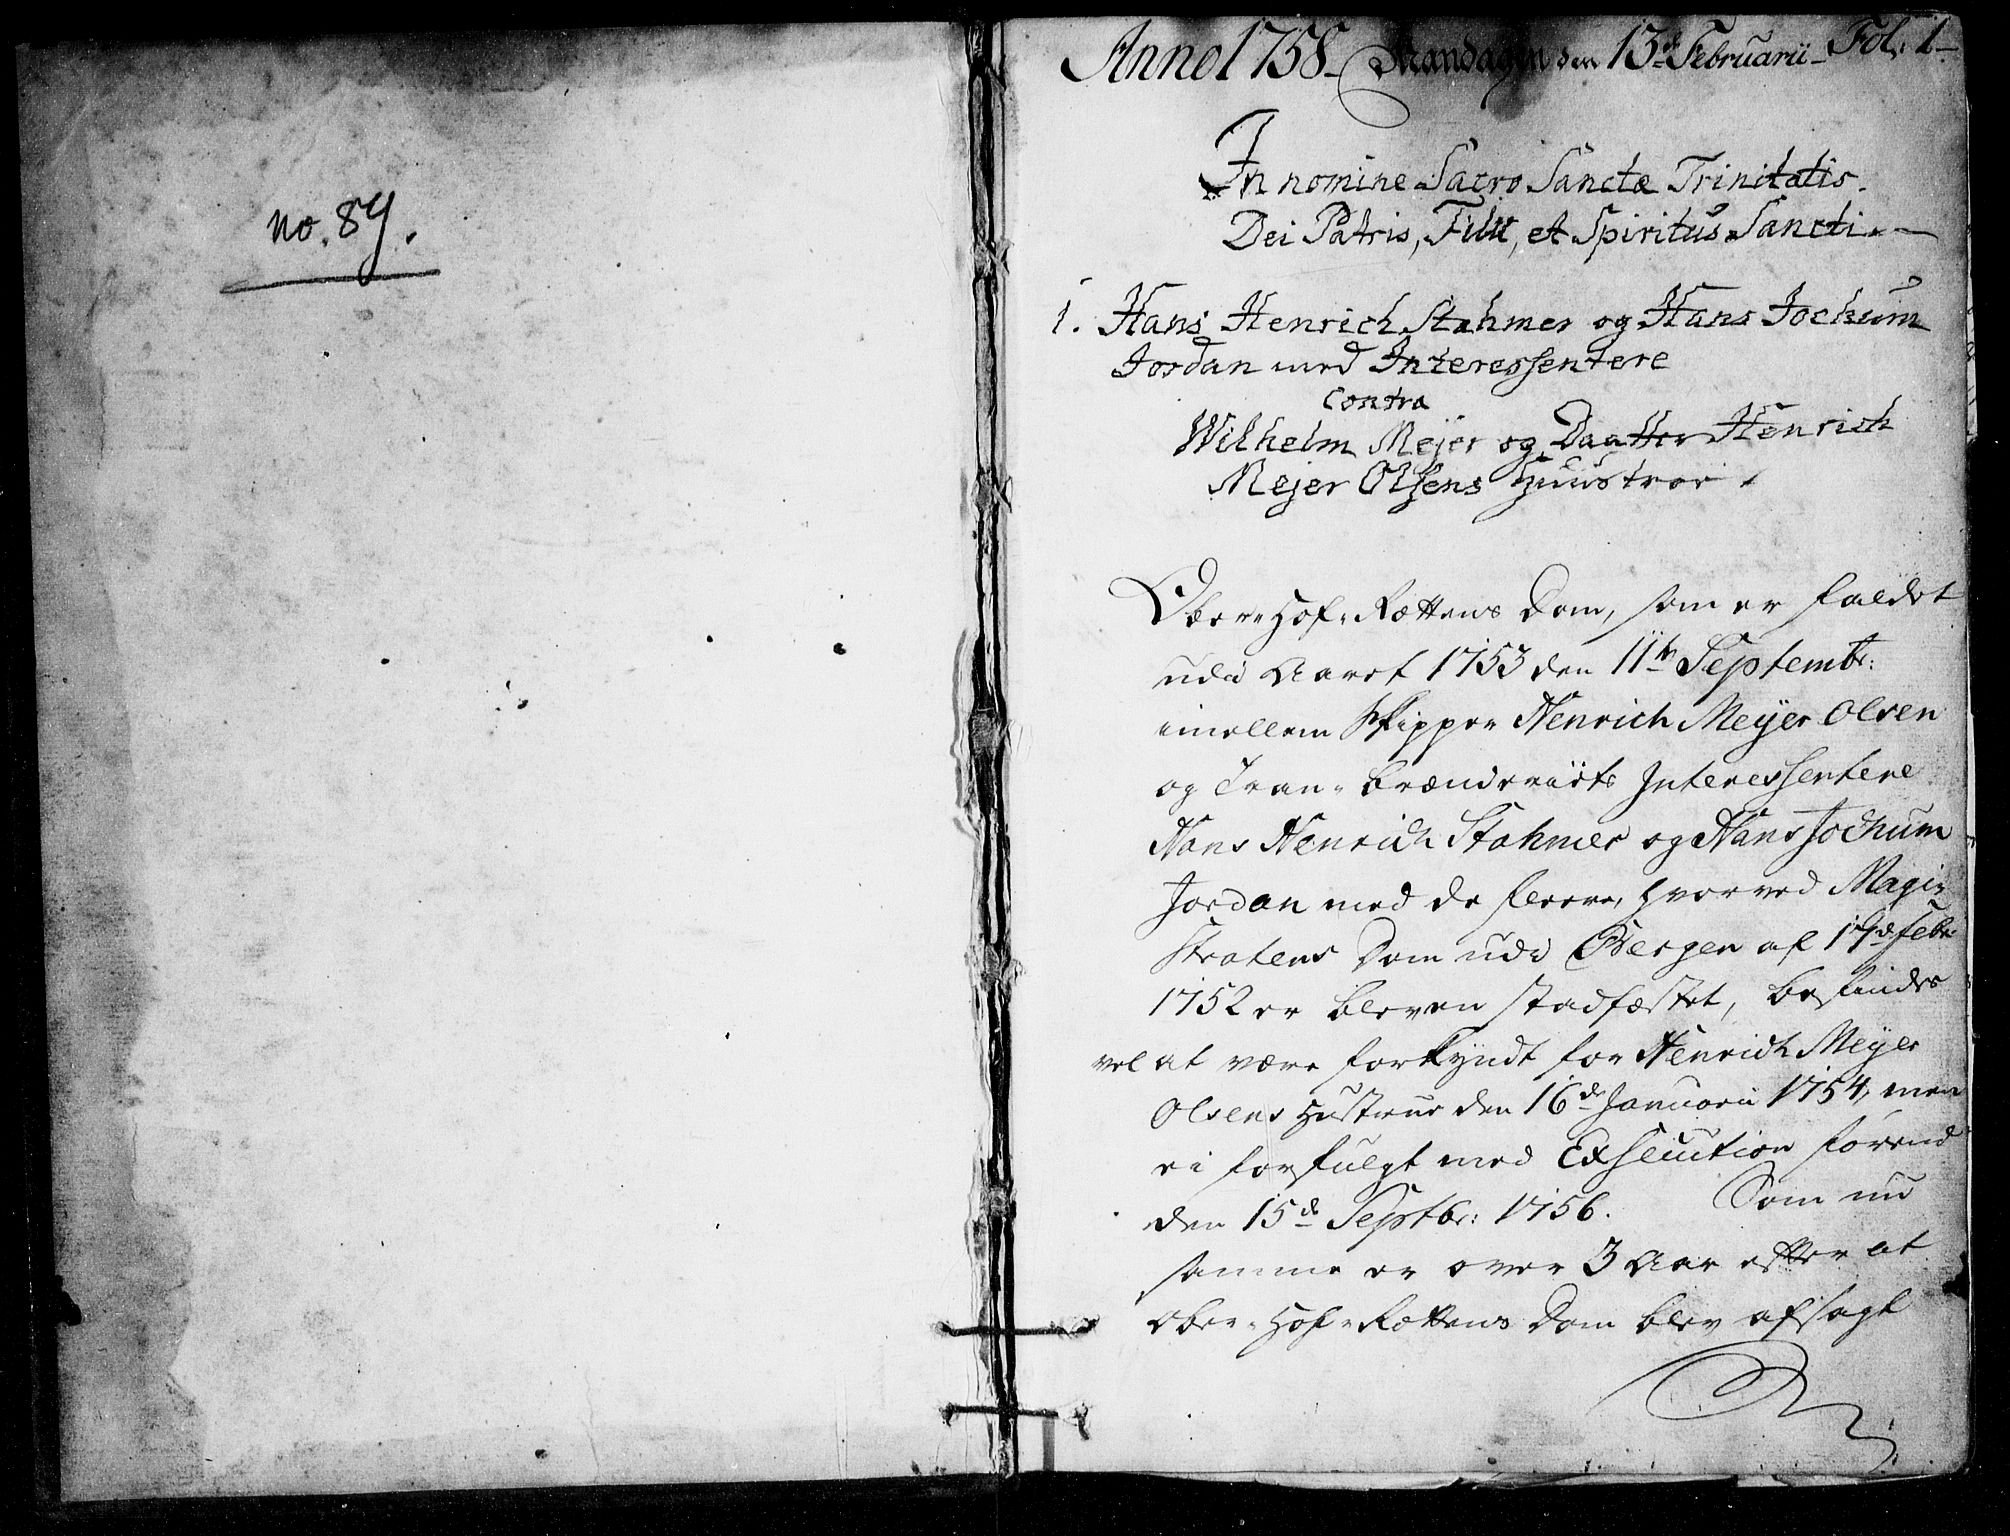 no. 89.
Anno 1758 Mandagen den 13de Februarii Fol: 1
In nomine Sacro Sanctæ Trinitatis.
Dei Patris, Filii, et Spiritus Sancti.
1. Hans Henrich Stahmer og Hans Jochum
Jordan med Interessentere
Contra
Wilhelm Mejer og Daatter Henrich
Mejer Olsens Huustroe.
Ober-Hof-Rættens Dom, som er faldet
udi Aaret 1753 den 11te Septembr:
imellem Skipper Henrich Meyer Olsen
og Tran-brænderiets Interessentere
Hans Henrich Stahmer og Hans Jochum
Jordan med de fleere, hvorved Magi-
stratens Dom udi Bergen af 17de Febr:
1752 er bleven stadfæstet, befindes
vel at være forkyndt for Henrich Meyer
Olsens Hustrue den 16de Januarii 1754, men
ei forfulgt med Exsecution forend
den 15de Septbr: 1756. Som nu
samme er over 3 Aar efter at
Ober-Hof-Rættens Dom blev afsagt